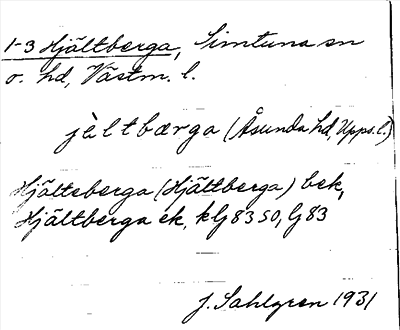 1-3 Hjältberga, Simtuna sn
o. hd, Västm. l.
jèltbærga (Åsunda hd, Upps. l.)
Hjälteberga (Hjältberga) bek,
Hjältberga ek, kG 83 SO, G 83
J. Sahlgren 1931